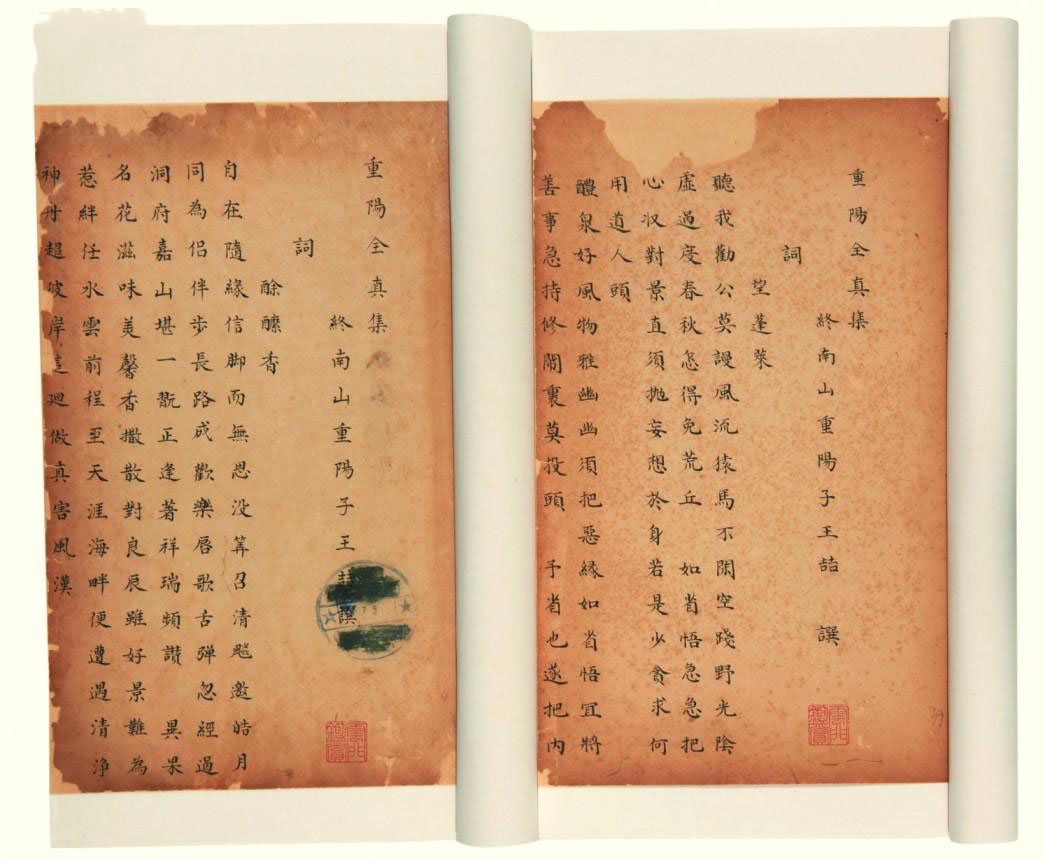 重陽全真集
終南山重陽子王喆 譔
詞
望蓬萊
聽我勸公莫謾風流猿馬不閑空踐野光陰
虛過度春秋怎得免荒丘 如省悟急急把
心収對景直須抛妄想於身若是少貪求何
用道人頭
醴泉好風物雅幽幽須把惡緣如省悟宜將
善事急持修閙裏莫投頭 予省也遂把内
重陽全真集
終南山重陽子王譔
詞
酴醾香
自在隨緣信脚而無思没筭召清飈邀皓月
同為侣伴步長路成歡樂唇歌舌弹忽經過
洞府嘉山堪一翫正逢著祥瑞頻讚 異果
名花滋味美馨香撒散對良辰雖好景難為
惹絆任水雲前程至天涯海畔便遭遇清浄
神丹超彼岸這廻做真害風漢